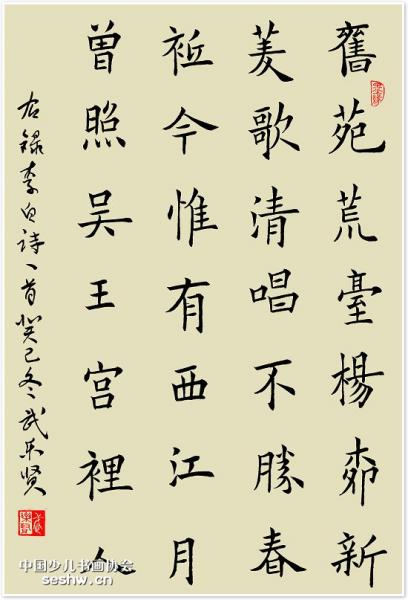 舊苑荒臺楊柳新
菱歌清唱不勝春
祗今惟有西江月
曾照吳王宮裡人
右錄李白诗一首癸巳冬武乐贤
中国少儿书画协会
seshw.cn